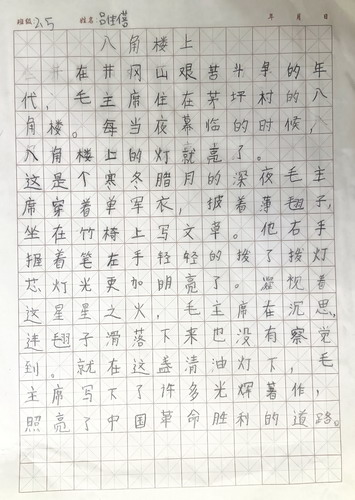 班级 2.5 姓名 年 月 日
八角楼上
在井冈山艰苦斗争的年
代，毛主席住在茅坪村的八
角楼。每当夜幕临的时候，
八角楼上的灯就亮了。
这是个寒冬腊月的深夜毛主
席穿着单军衣，披着薄毯子，
坐在竹椅上写文章。他右手
握着笔左手轻轻的拨了拨灯
芯灯光更加明亮了。凝视着
这星星之火，毛主席在沉思，
连毯子滑落下来也没有察觉
到。就在这盏清油灯下，毛
主席写下了许多光辉著作，
照亮了中国革命胜利的道路。